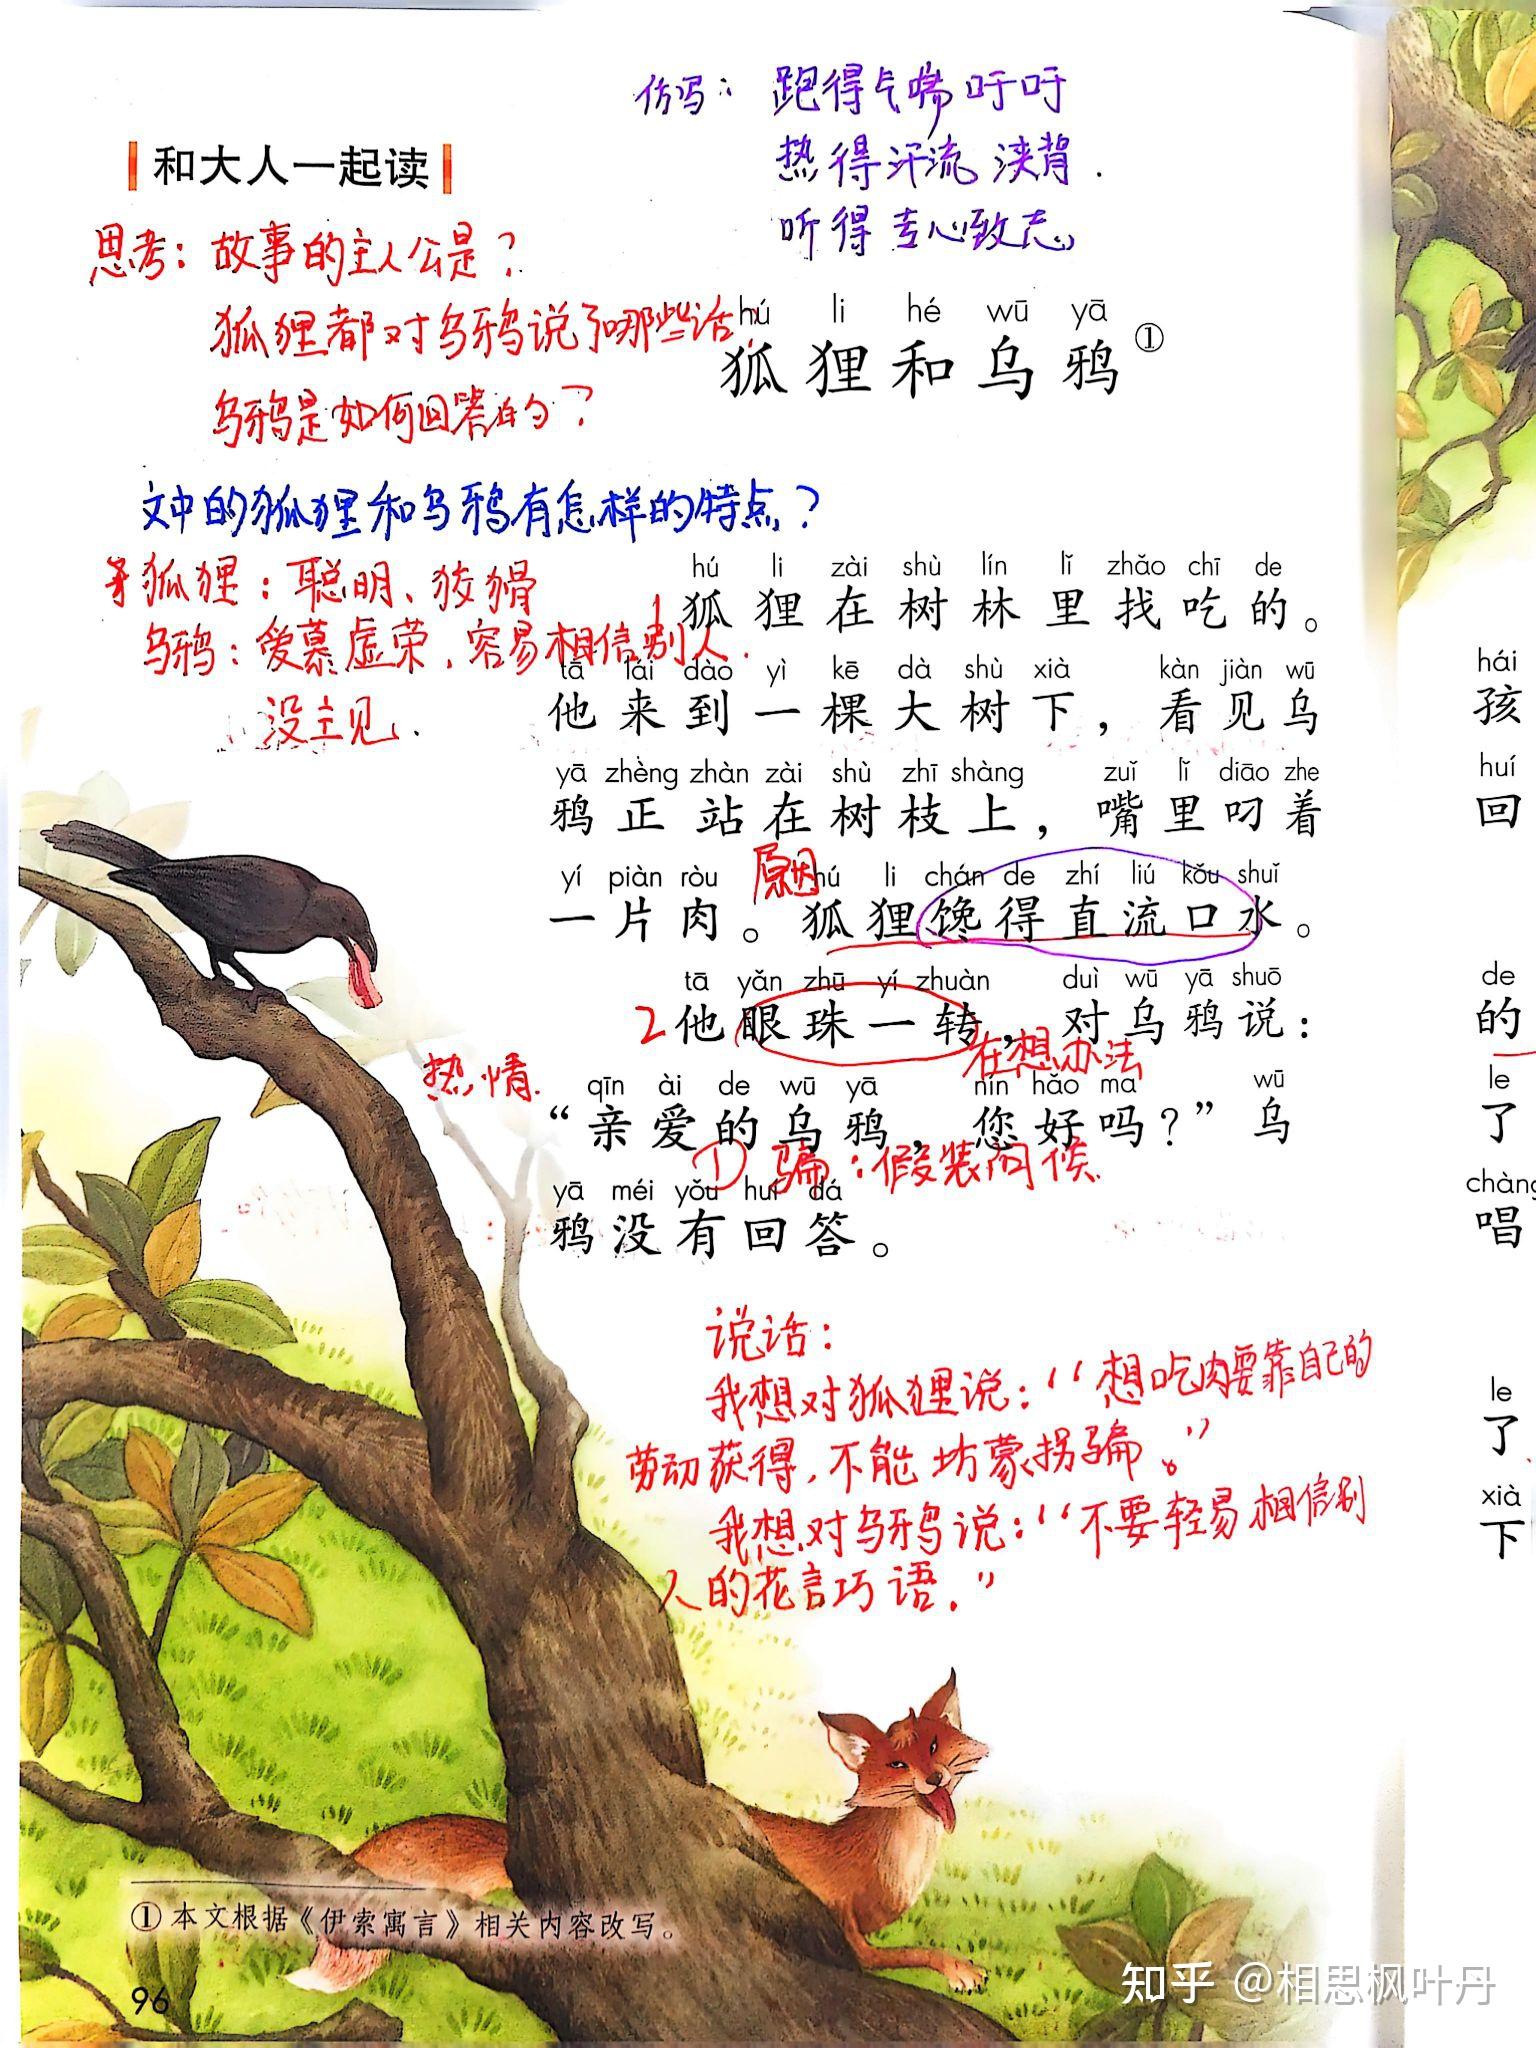 仿写：跑得气喘吁吁
热得汗流浃背.
听得专心致志
和大人一起读
思考：故事的主人公是？
狐狸都对乌鸦说了哪些话？
乌鸦是如何回答的？
hú li hé wū yā
狐狸和乌鸦①
文中的狐狸和乌鸦有怎样的特点？
狐狸：聪明、狡猾
乌鸦：爱慕虚荣，容易相信别人.
没主见.
hú li zài shù lín lǐ zhǎo chī de
1 狐狸在树林里找吃的。
tā lái dào yì kē dà shù xià kàn jiàn wū
他来到一棵大树下，看见乌
yā zhèng zhàn zài shù zhī shàng zuǐ lǐ diāo zhe
鸦正站在树枝上，嘴里叼着
原因
yí piàn ròu hú li chán de zhí liú kǒu shuǐ
一片肉。狐狸馋得直流口水。
tā yǎn zhū yí zhuàn duì wū yā shuō
2 他眼珠一转，对乌鸦说：
在想办法
热情.
qīn ài de wū yā nín hǎo ma wū
“亲爱的乌鸦，您好吗？”乌
① 骗：假装问候.
yā méi yǒu huí dá
鸦没有回答。
说话：
我想对狐狸说：“想吃肉要靠自己的
劳动获得，不能坊蒙拐骗。”
我想对乌鸦说：“不要轻易相信别
人的花言巧语.”
①本文根据《伊索寓言》相关内容改写。
96
hái
孩
huí
回
de
的
le
了
chàng
唱
le
了
xià
下
知乎 @相思枫叶丹